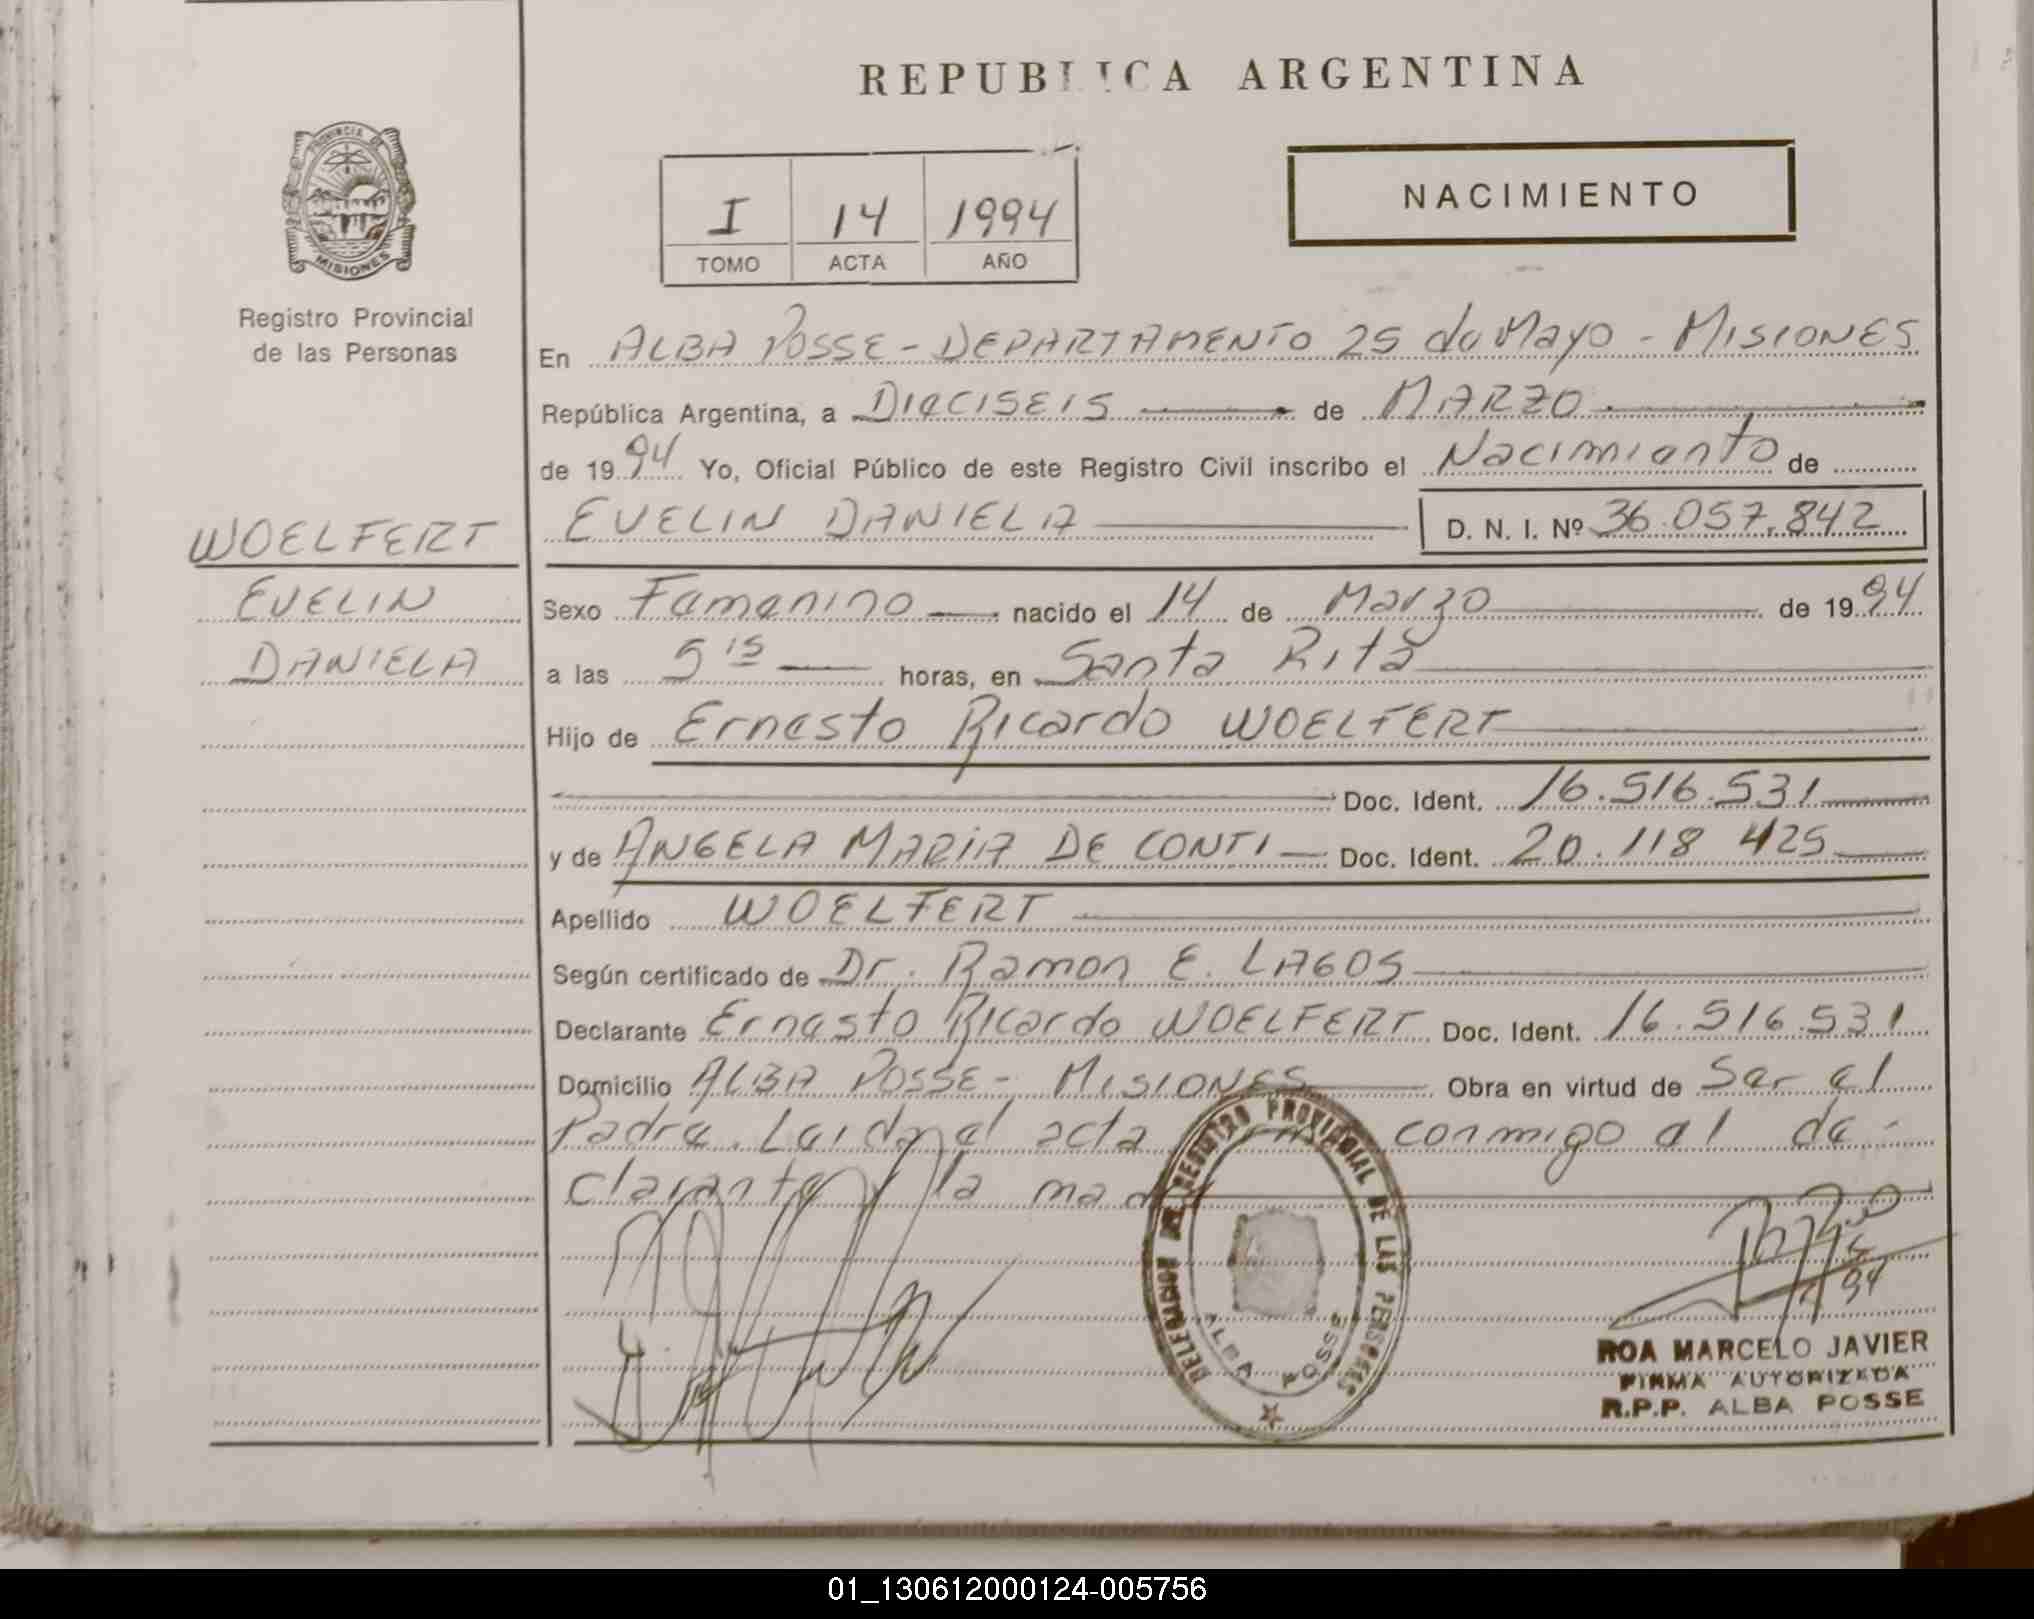 REPUBLICA ARGENTINA
PROVINCIA DE
MISIONES
Registro Provincial
de las Personas
NACIMIENTO
I 14 1994
TOMO ACTA AÑO
En ALBA POSSE - DEPARTAMENTO 25 de Mayo - MISIONES
República Argentina, a DIECISEIS de MARZO
de 1994 Yo, Oficial Público de este Registro Civil inscribo el Nacimiento de
WOELFERT EVELIN DANIELA D. N. I. Nº 36.057.842
EVELIN Sexo Femenino nacido el 14 de Marzo de 1994
DANIELA a las 5 15 horas, en Santa Rita
Hijo de Ernesto Ricardo WOELFERT
Doc. Ident. 16.516.531
y de ANGELA MARIA DE CONTI Doc. Ident. 20.118 425
Apellido WOELFERT
Según certificado de Dr. Ramon E. LAGOS
Declarante Ernesto Ricardo WOELFERT Doc. Ident. 16.516.531
Domicilio ALBA POSSE - MISIONES Obra en virtud de Ser el
Padre. Leida el acta conmigo el de-
clarante y la madre
DELEGACION DE REGISTRO PROVINCIAL DE LAS PERSONAS
ALBA POSSE
ROA MARCELO JAVIER
FIRMA AUTORIZADA
R.P.P. ALBA POSSE
01_130612000124-005756